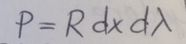 P = R dx dλ